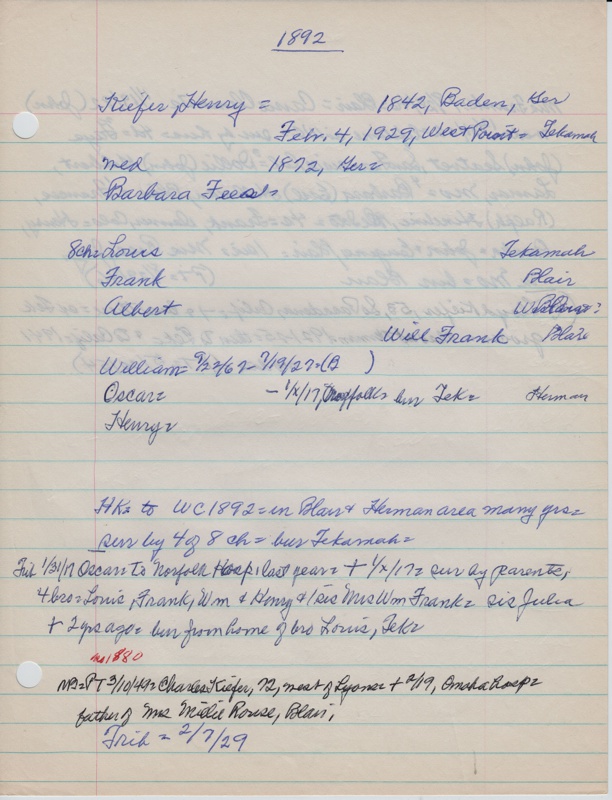 1892
Kiefer, Henry = 1842, Baden, Ger
Feb. 4, 1929, West Point = Tekamah
med 1872, Ger=
Barbara
8ch= Louis Tekamah
Frank Blair
Albert
Will Frank Blair
William= 7/19/27=(B )
Oscar= - 1/x/17, Norfolk= bur Tek= Herman
Henry=
HK= to WC 1892= in Blair & Herman area many yrs=
sur by 4 of 8 ch= bur Tekamah=
Trib 1/31/17 Oscar= To Norfolk Hosp, last year= + 1/x/17= sur by parents,
4 bro= Louis, Frank, Wm & Henry & 1 sis Mrs Wm Frank= sis Julia
+ 2 yrs ago= bur from home of bro Louis, Tek=
no 1880
NB= PT 3/10/49= Charles Kiefer, 72, west of Lyons= + 2/19, Omaha Hosp=
father of Mrs Millie Rouse, Blair,
Trib = 2/7/29